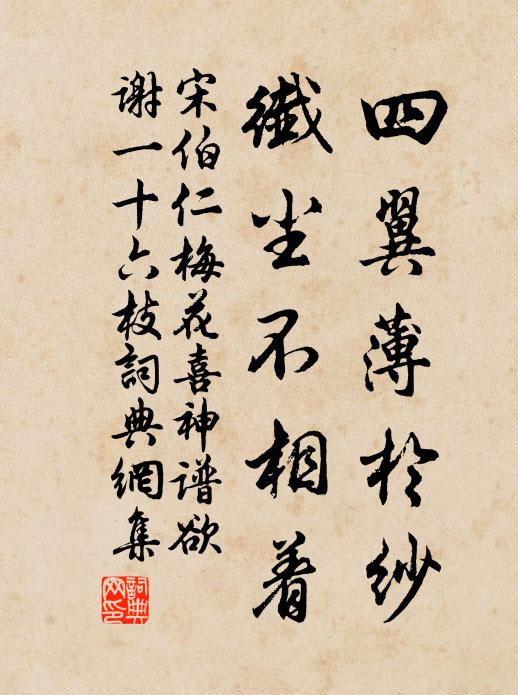 四翼薄於紗
纖尘不相着
宋伯仁梅花喜神谱欲
谢一十六枝詞典網集
詞典网印